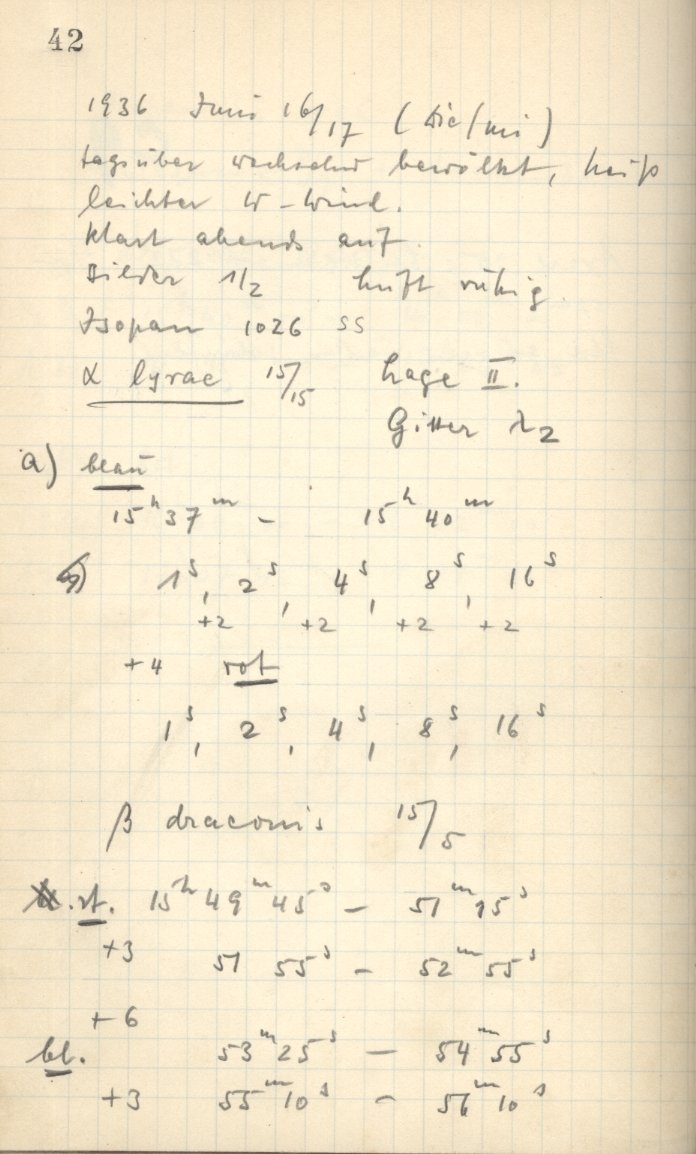 42
1936 Juni 16/17 (Die/Mi)
tagsüber wechselnd bewölkt, heiß
leichter W-Wind.
Klart abends auf.
Bilder 1/2 Luft ruhig.
Isopan 1026 SS
α lyrae 15/15 Lage II.
Gitter λ2
a) blau
15h 37m - 15h 40m
1s, 2s, 4s, 8s, 16s
+2 +2 +2 +2
+4 rot
1s, 2s, 4s, 8s, 16s
β draconis 15/5
rt. 15h 49m 45s - 51m 15s
+3 51 55s - 52m 55s
+6
bl. 53m 25s - 54m 55s
+3 55m 10s - 56m 10s